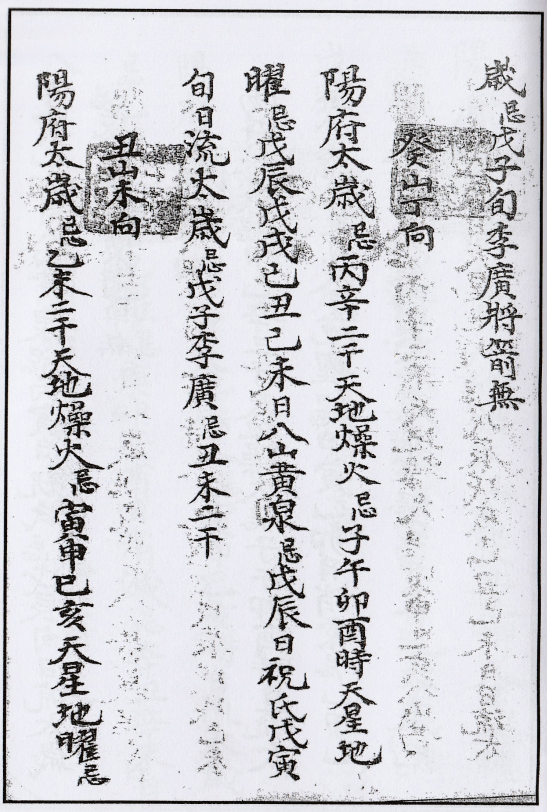 歲忌戊子旬李廣將箭無
癸山丁向
陽府太歲忌丙辛二干天地燥火忌子午卯酉時天星地
曜忌戊辰戊戌己丑己未日八山黄泉忌戊辰日祝氏戊寅
旬日流太歲忌戊子李廣忌丑未二干
丑山未向
陽府太歲忌乙未二干天地燥火忌寅申巳亥天星地曜忌